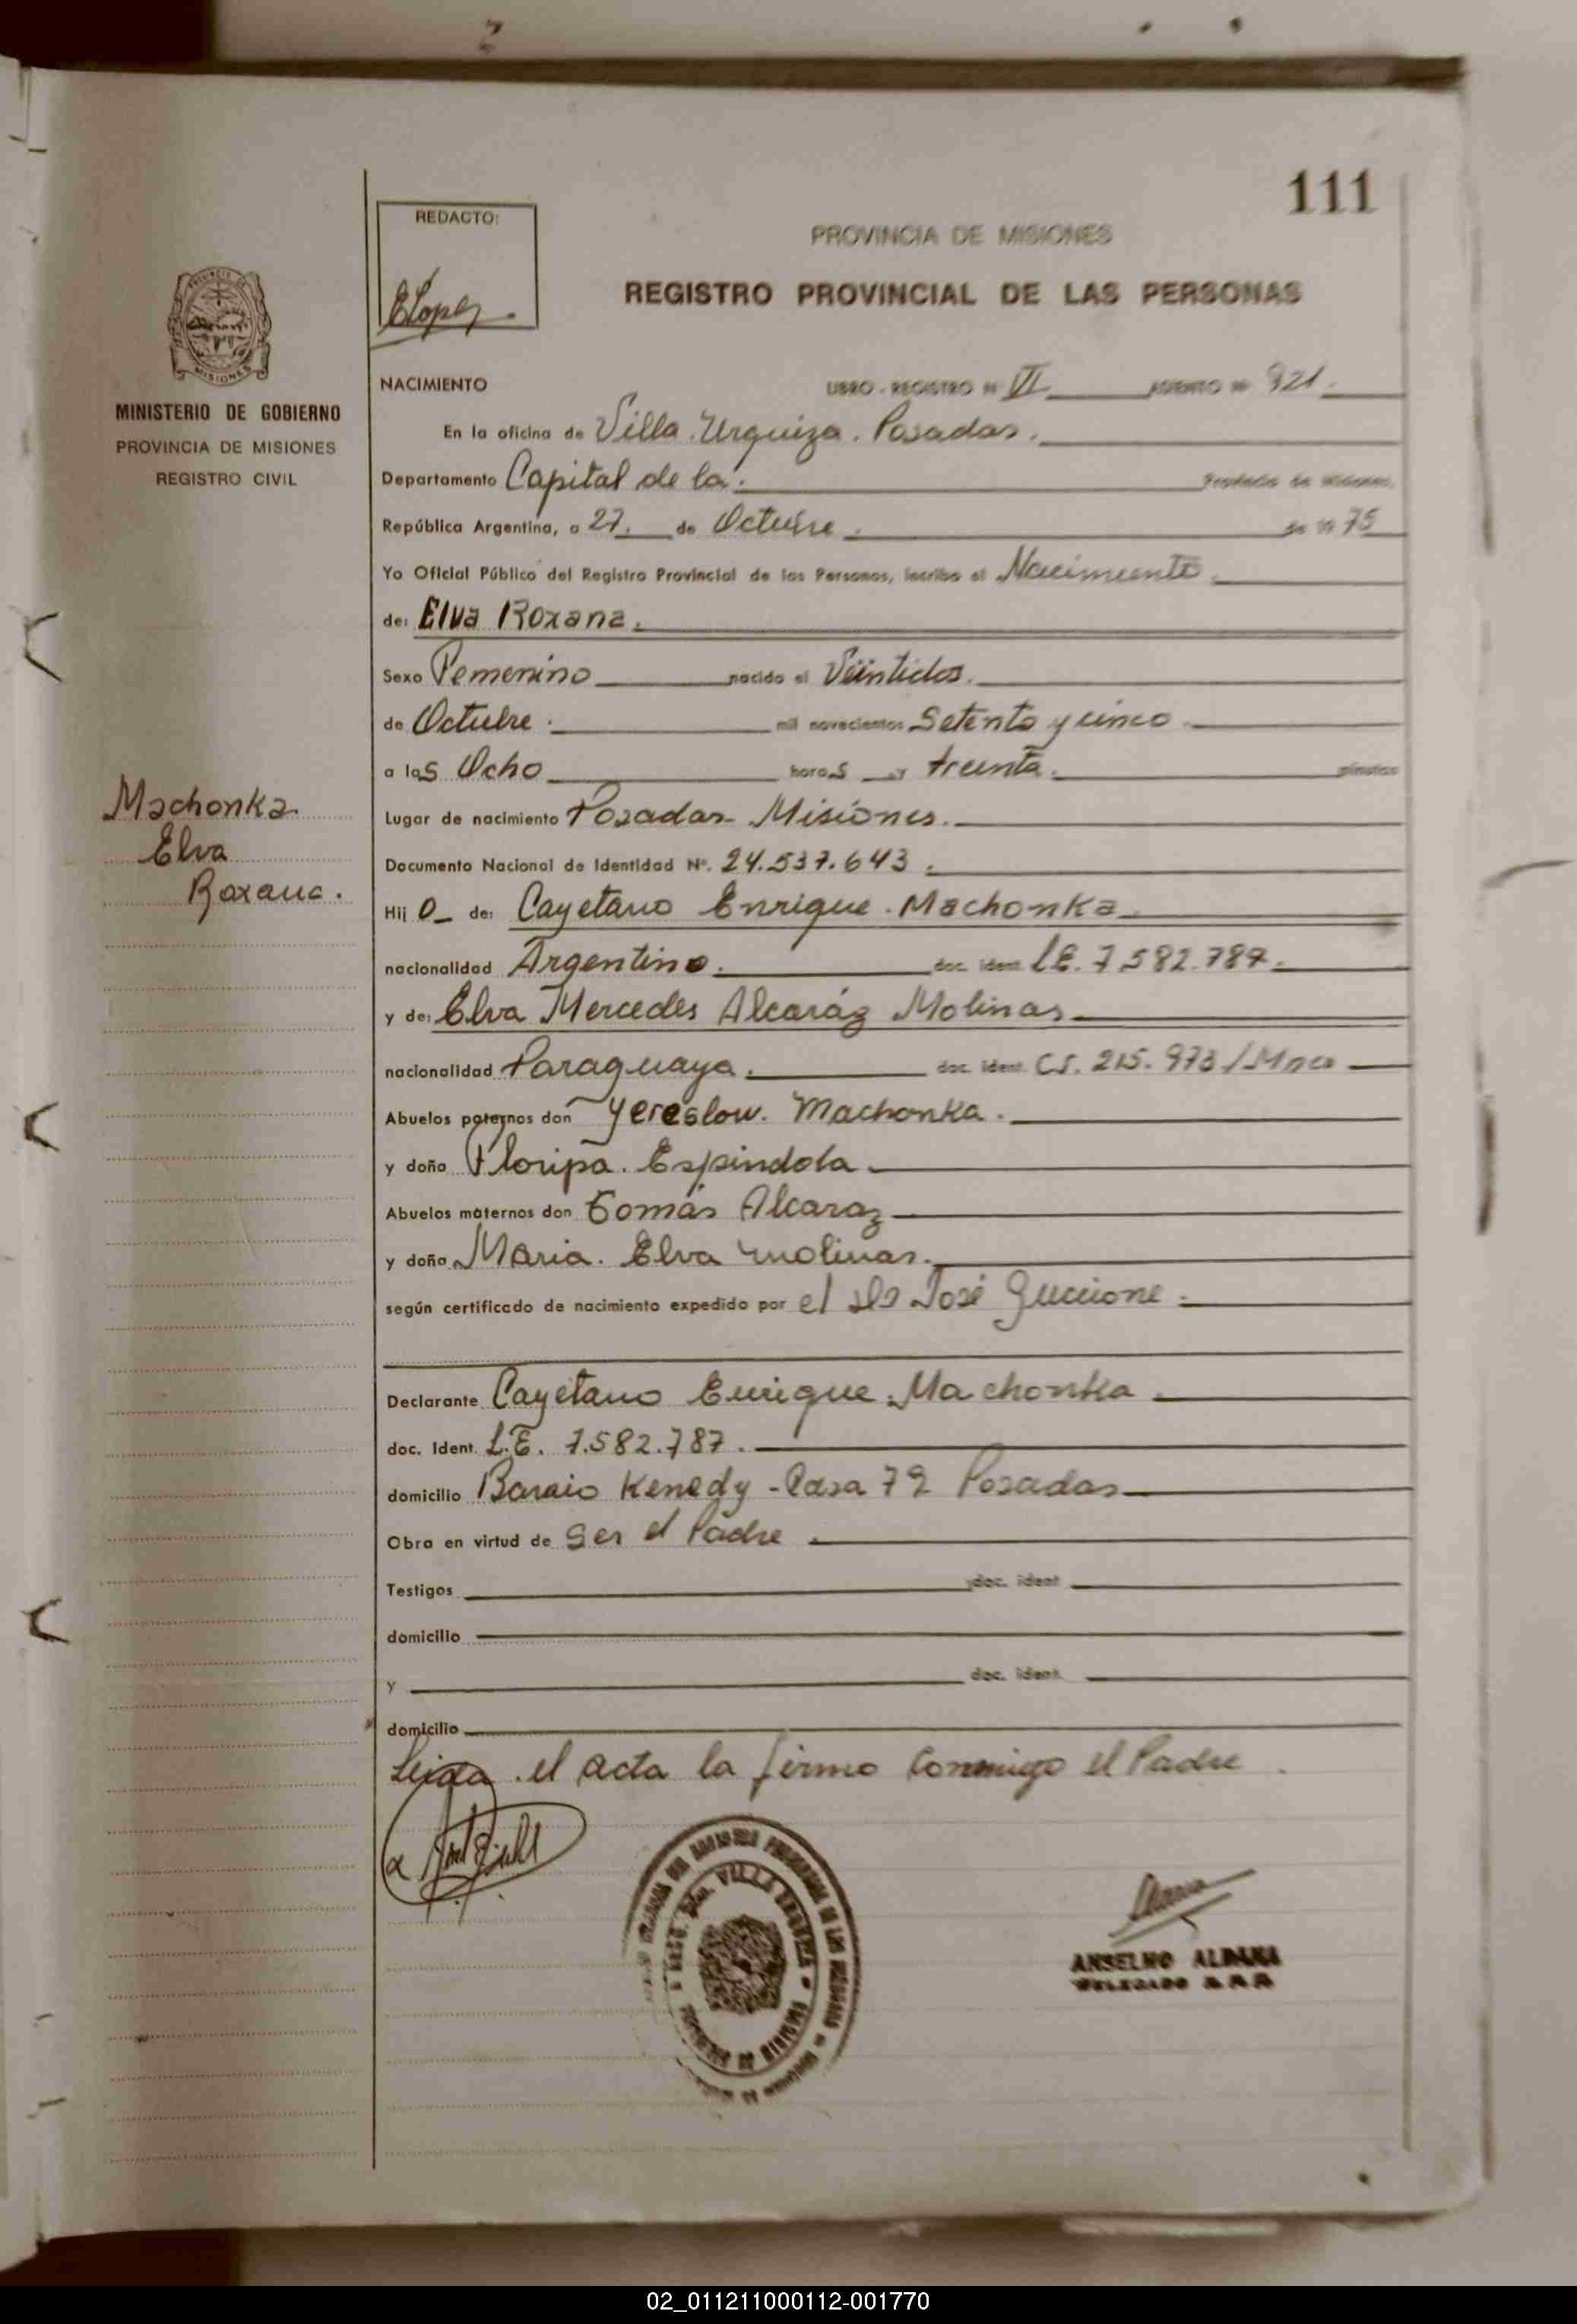 111
REDACTO:
ELopez.
PROVINCIA DE MISIONES
REGISTRO PROVINCIAL DE LAS PERSONAS
MISIONES
MINISTERIO DE GOBIERNO
PROVINCIA DE MISIONES
REGISTRO CIVIL
Machonka
Elva
Roxana.
NACIMIENTO LIBRO - REGISTRO Nº VI ASIENTO Nº 921.
En la oficina de Villa Urquiza. Posadas.
Departamento Capital de la. Provincia de Misiones,
República Argentina, a 27. de Octubre. de 19 75
Yo Oficial Público del Registro Provincial de las Personas, inscribo el Nacimiento.
de: Elva Roxana.
Sexo Femenino nacido el Veintidos.
de Octubre. mil novecientos Setenta y cinco.
a las Ocho horas y treinta. minutos
Lugar de nacimiento Posadas - Misiones.
Documento Nacional de Identidad Nº. 24.537.643.
Hij o de: Cayetano Enrique Machonka
nacionalidad Argentino. doc. ident. L.E. 7.582.787.
y de: Elva Mercedes Alcaráz Molinas
nacionalidad Paraguaya. doc. ident. 215.973/Mnes
Abuelos paternos don Yereslow. Machonka.
y doña Floripa. Espindola
Abuelos maternos don Tomás Alcaraz
y doña Maria. Elva Molinas.
según certificado de nacimiento expedido por el José Guccione.
Declarante Cayetano Enrique Machonka.
doc. Ident. L.E. 7.582.787.
domicilio Barrio Kenedy - Casa 72 Posadas
Obra en virtud de ser el Padre
Testigos doc. ident
domicilio
y doc. ident.
domicilio
Leida el acta la firmo conmigo el Padre.
VILLA URQUIZA
ANSELMO ALDANA
DELEGADO
02_011211000112-001770